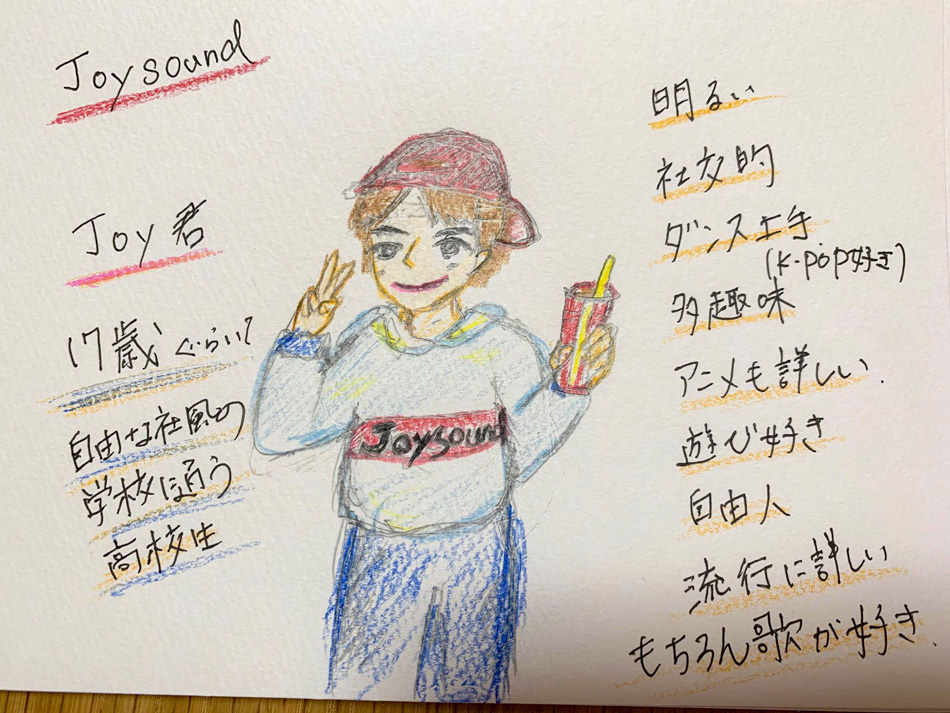 Joysound
Joy君
17歳ぐらい?
自由な社風の
学校に通う
高校生
Joysound
明るい
社交的
ダンス上手
(K-pop好き)
多趣味
アニメも詳しい.
遊び好き
自由人
流行に詳しい
もちろん歌が好き.